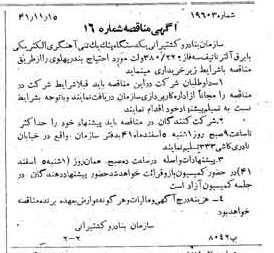 شماره ۱۹۶۰۳ ۴۱/۱۱/۱۵
آگهی مناقصه شماره ۱۶
سازمان بنادر و کشتیرانی یکدستگاه پتک یک تنی آهنگری الکتریکی
با برق آلترناتیف سه فاز ۳۸۰/۲۲۰ ولت مورد احتیاج بندر پهلوی را از طریق
مناقصه با شرایط زیر خریداری مینماید
۱ـ داوطلبان شرکت در این مناقصه باید قبلا شرایط شرکت در
مناقصه را مجاناً از اداره کارپردازی سازمان دریافت نمایند و با توجه بشرایط
نسبت به تسلیم پیشنهاد خود اقدام نمایند
۲ـ شرکت کنندگان در مناقصه باید پیشنهاد خود را حداکثر
تا ساعت ۹ صبح روز ۱ شنبه ۵ اسفند ماه ۴۱ بدفتر سازمان واقع در خیابان
نادری کاشی ۳۳۳ تسلیم نمایند
۳ـ پیشنهادات واصله در ساعت ده صبح همان روز (۱ شنبه ۵ اسفند
۴۱) در حضور کمیسیون باز و قرائت خواهد شد حضور پیشنهاد دهندگان در
جلسه کمیسیون آزاد است
۴ـ هزینه درج آگهی و مالیات و هر گونه عوارض بعهده برنده مناقصه
خواهد بود
سازمان بنادر و کشتیرانی
پ ۸۰۴۲ ۲-۲